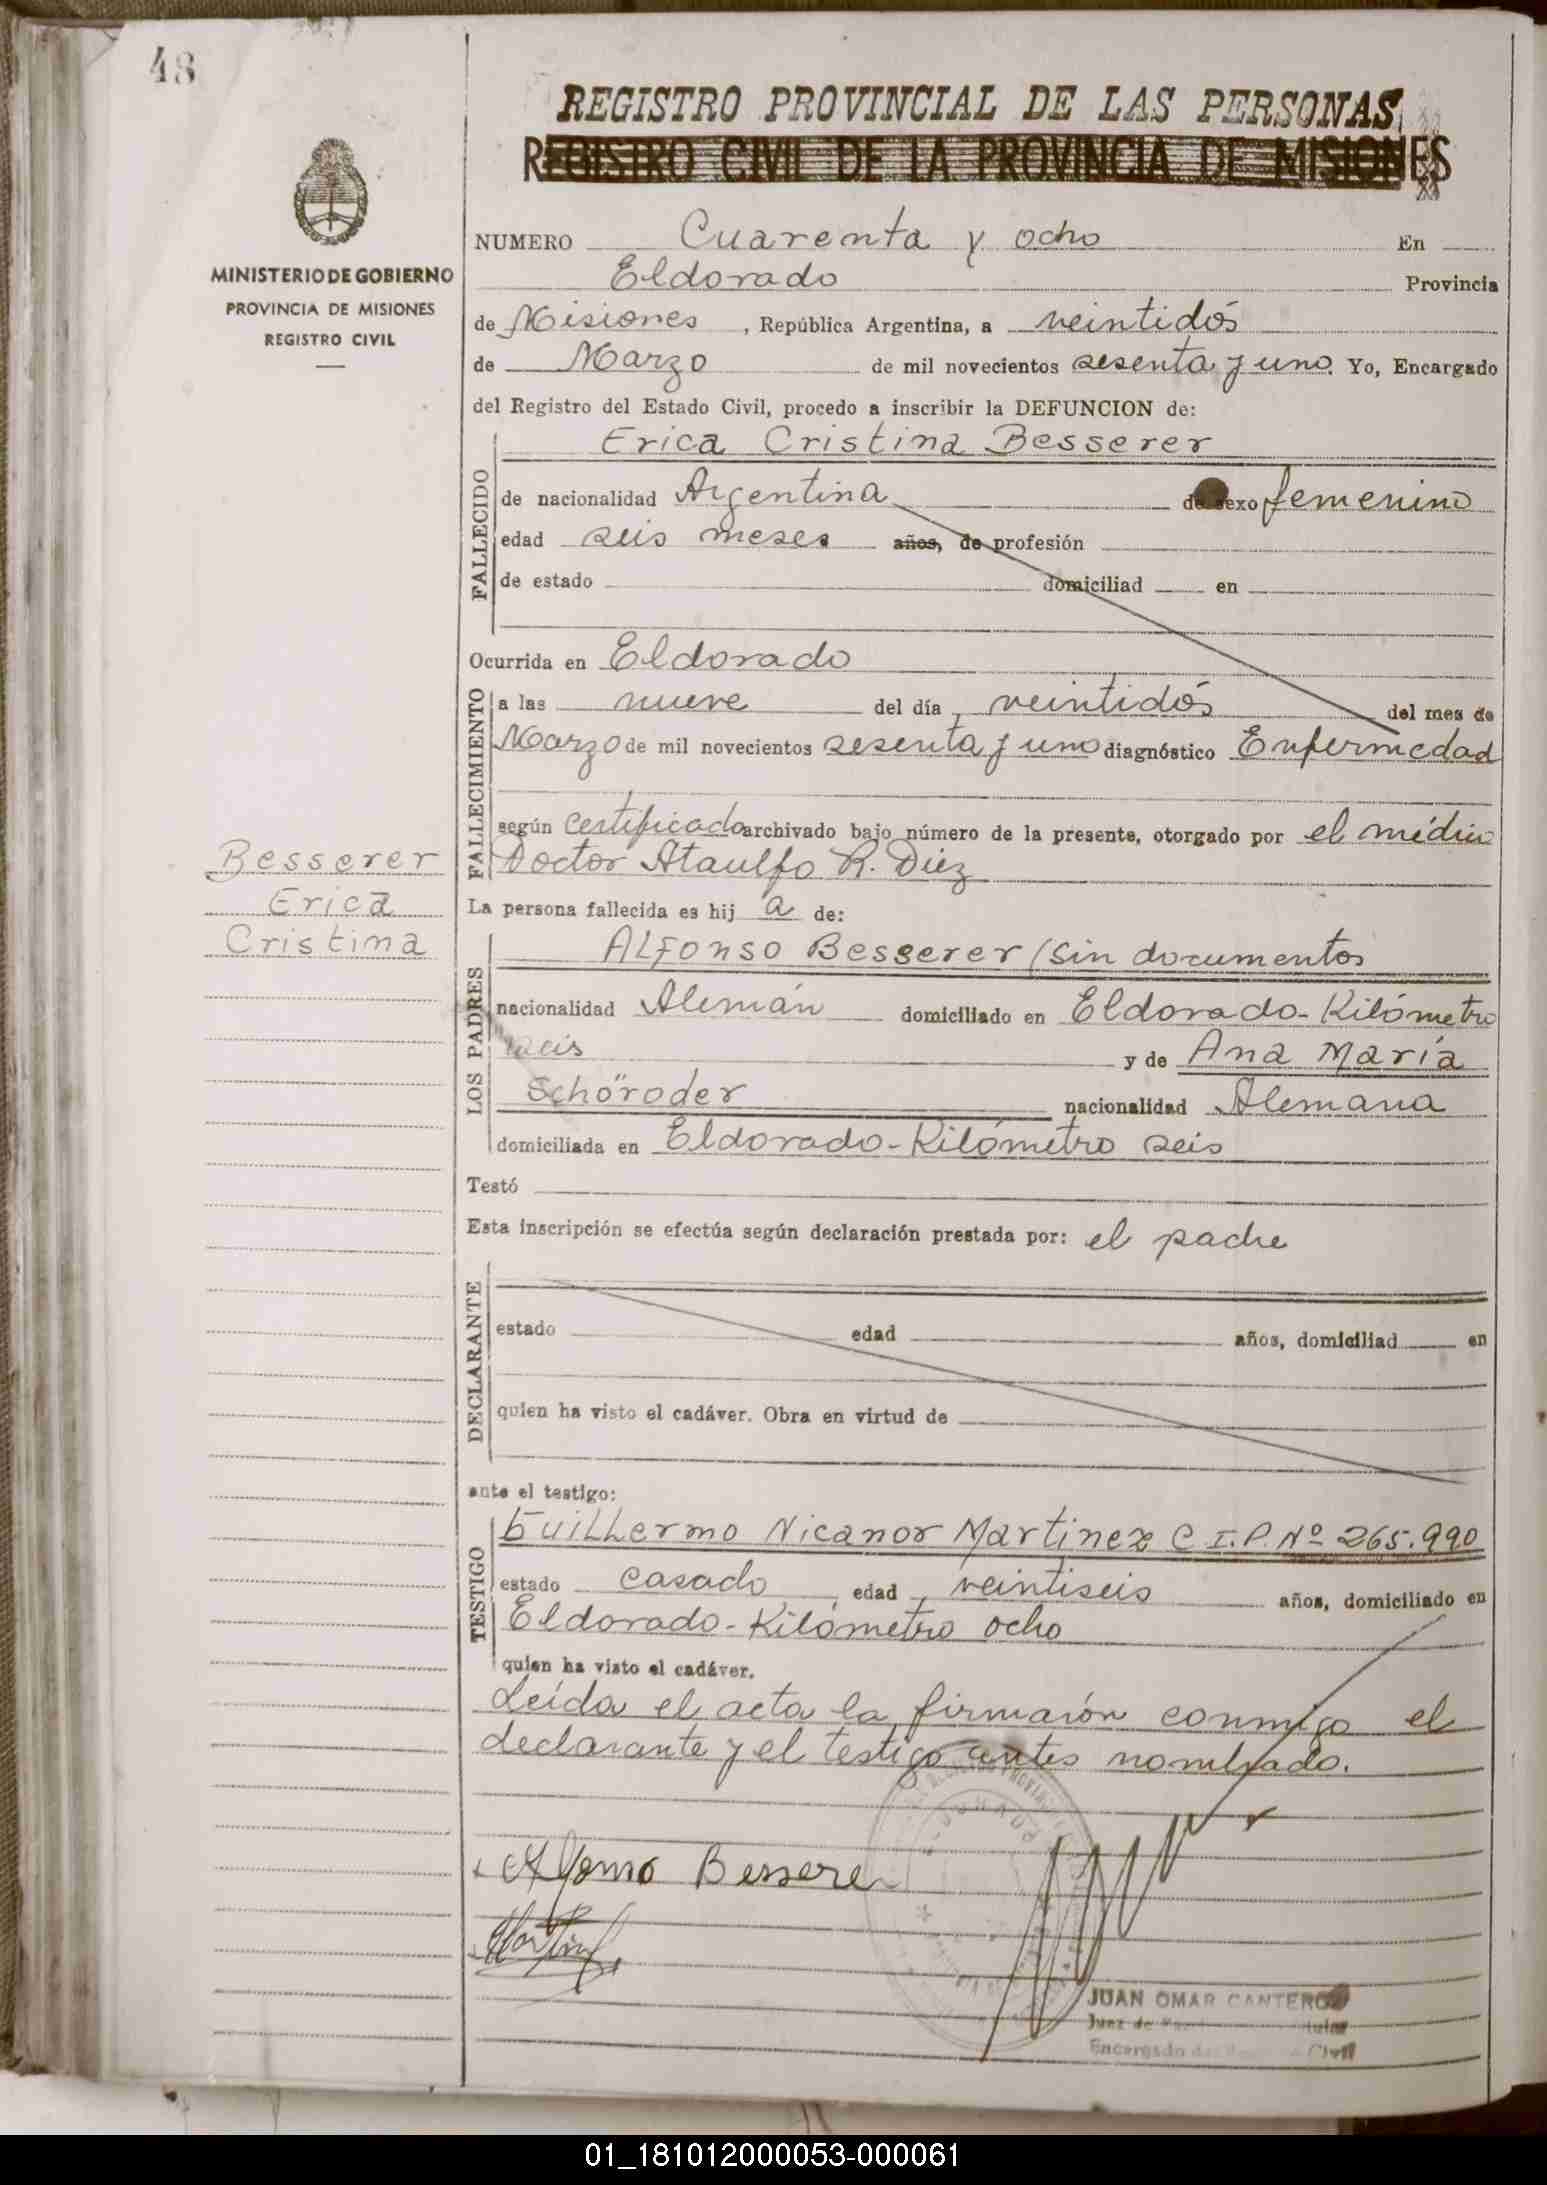 48
REGISTRO PROVINCIAL DE LAS PERSONAS
REGISTRO CIVIL DE LA PROVINCIA DE MISIONES
MINISTERIO DE GOBIERNO
PROVINCIA DE MISIONES
REGISTRO CIVIL
NUMERO Cuarenta y ocho En
Eldorado Provincia
de Misiones, República Argentina, a veintidós
de Marzo de mil novecientos sesenta y uno. Yo, Encargado
del Registro del Estado Civil, procedo a inscribir la DEFUNCION de:
FALLECIDO
Erica Cristina Besserer
de nacionalidad Argentina de sexo femenino
edad seis meses años, de profesión
de estado domiciliad en
Ocurrida en Eldorado
FALLECIMIENTO
a las nueve del día veintidós del mes de
Marzo de mil novecientos sesenta y uno diagnóstico Enfermedad
según certificado archivado bajo número de la presente, otorgado por el médico
Doctor Ataulfo R. Diez
Besserer
Erica
Cristina
La persona fallecida es hij a de:
LOS PADRES
Alfonso Besserer (sin documentos
nacionalidad Alemán domiciliado en Eldorado-Kilómetro
seis y de Ana María
Schöroder nacionalidad Alemana
domiciliada en Eldorado-Kilómetro seis
Testó
Esta inscripción se efectúa según declaración prestada por: el padre
DECLARANTE
estado edad años, domiciliad en
quien ha visto el cadáver. Obra en virtud de
ante el testigo:
TESTIGO
Guillermo Nicanor Martinez C.I.P. Nº 265.990
estado casado edad veintiseis años, domiciliado en
Eldorado-Kilómetro ocho
quien ha visto el cadáver.
Leída el acta la firmarón conmigo el
declarante y el testigo antes nombrado.
Alfonso Besserer
JUAN OMAR CANTERO
Juez de
Encargado del Civil
01_181012000053-000061